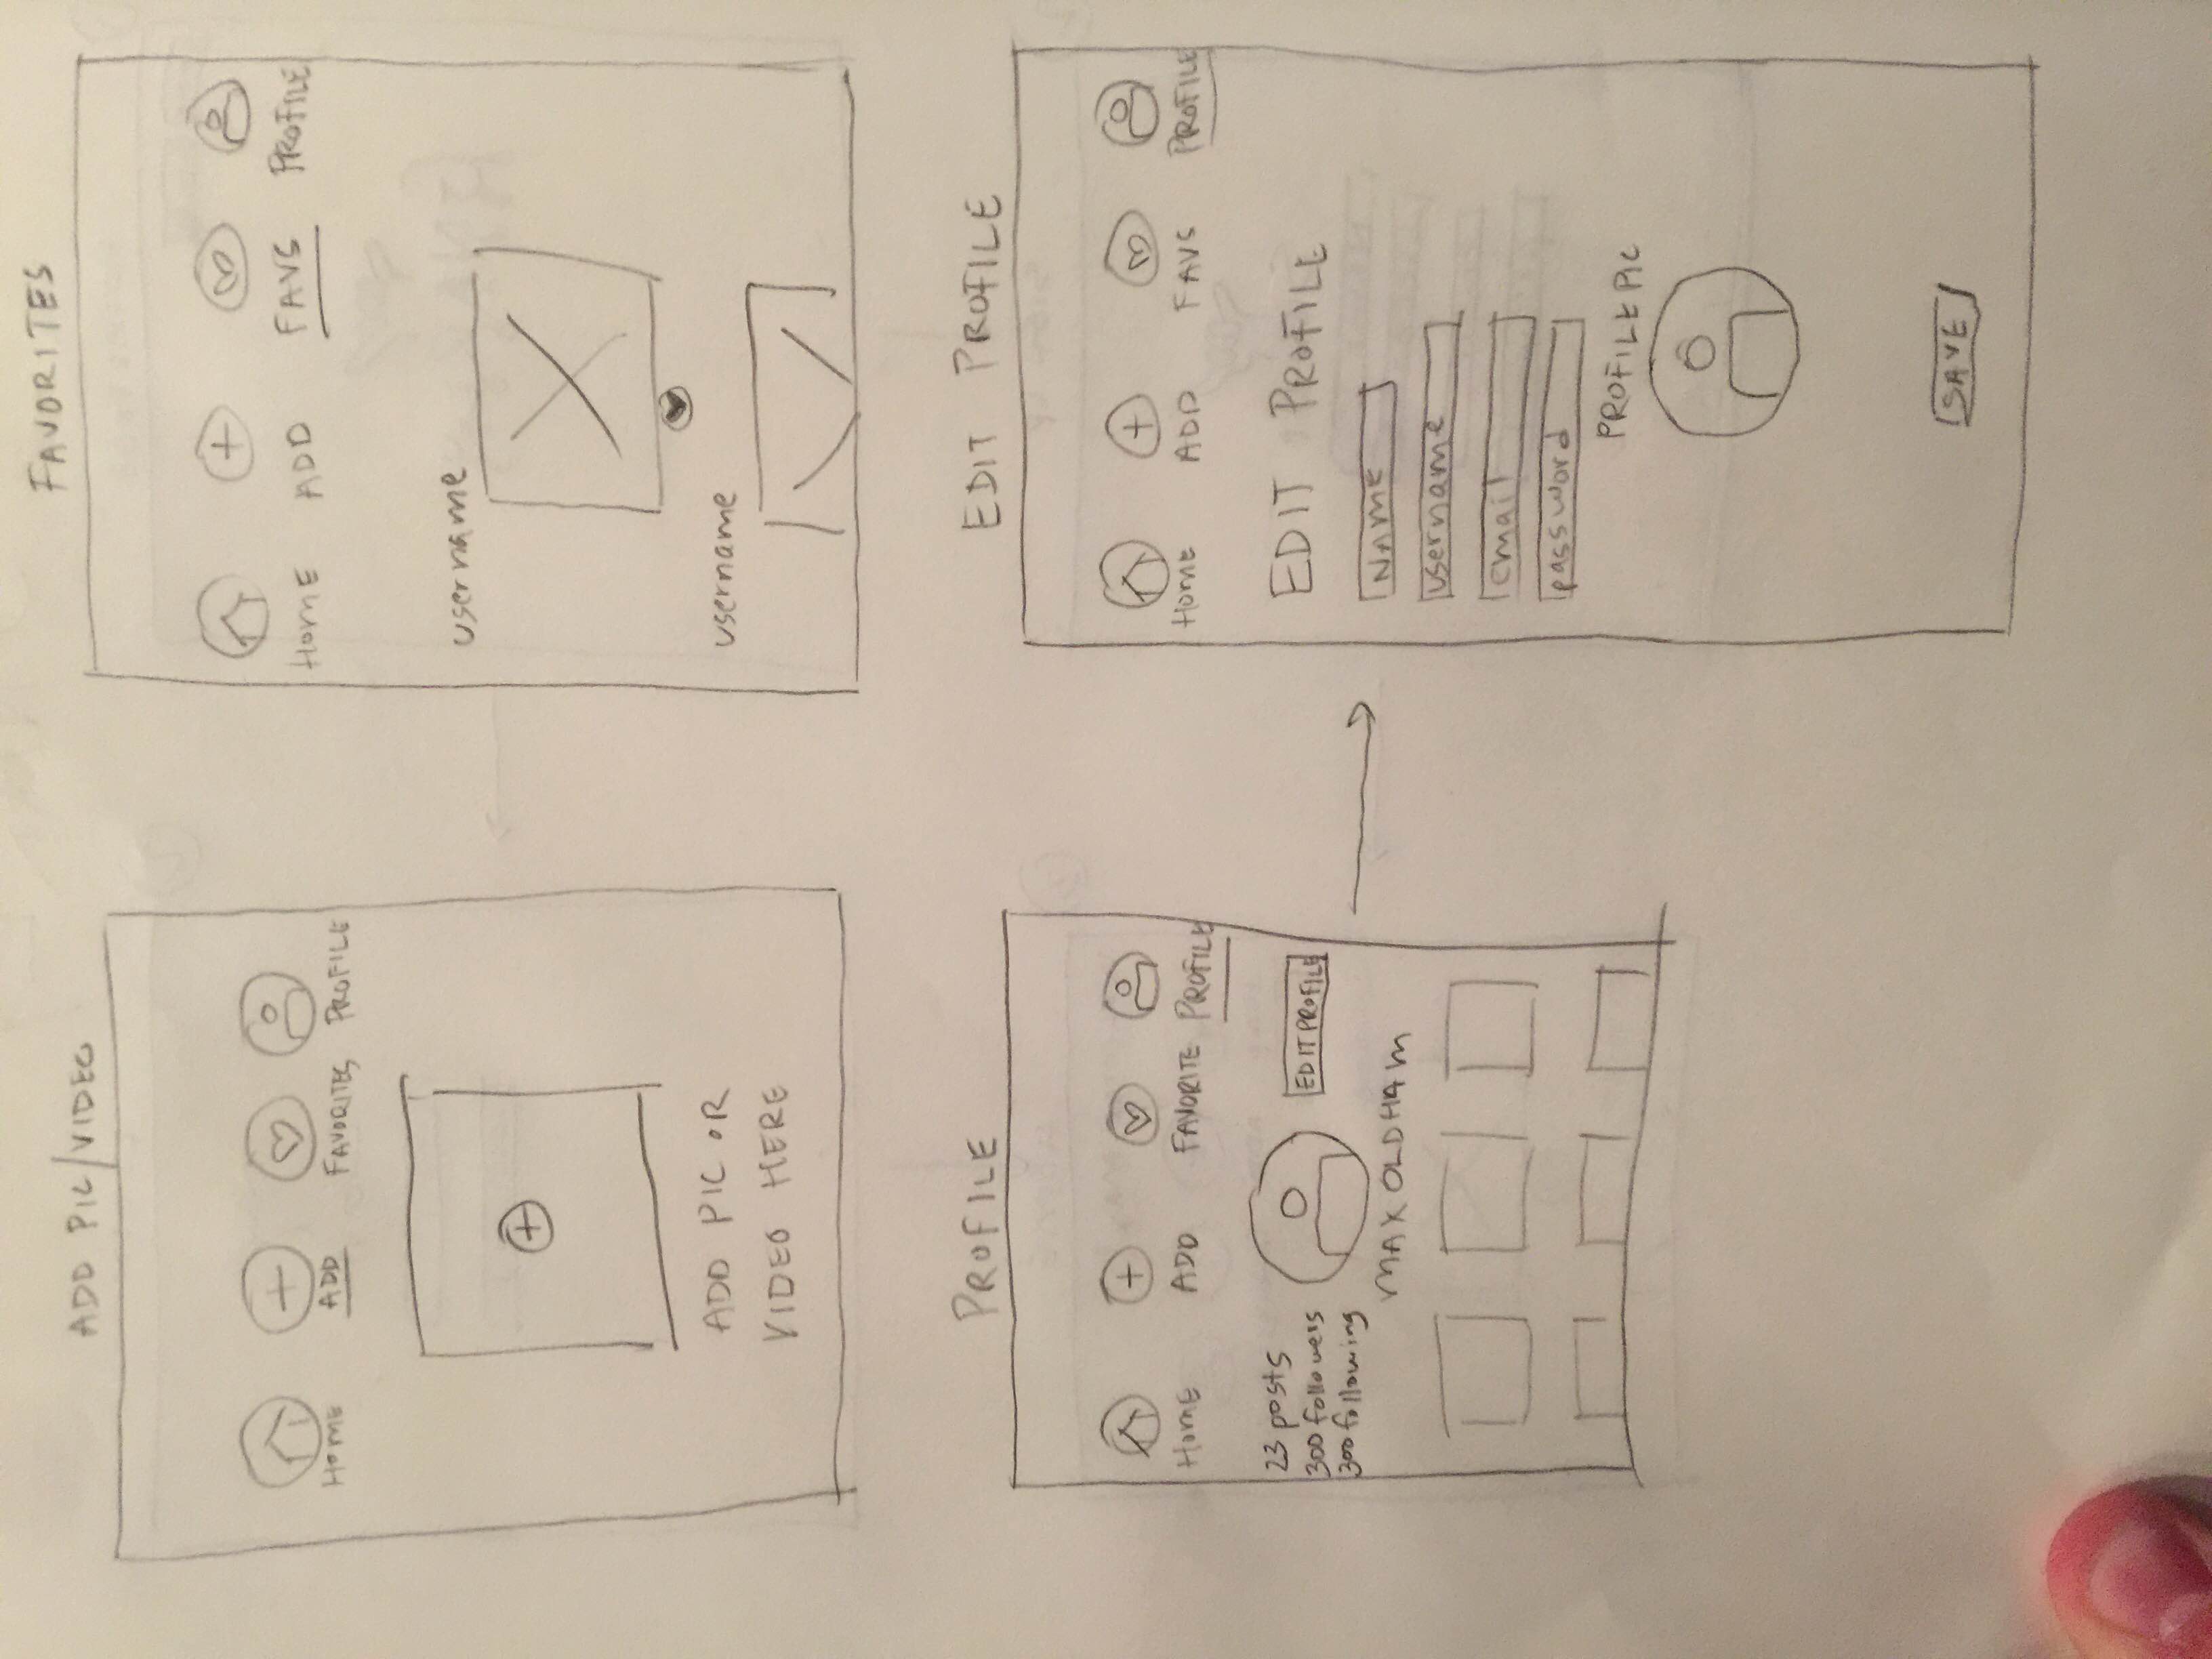 ADD PIC/VIDEO
Home ADD FAVORITES PROFILE
ADD PIC OR
VIDEO HERE
FAVORITES
Home ADD FAVS PROFILE
username
username
PROFILE
Home ADD FAVORITE PROFILE
23 posts
300 followers
300 following
EDIT PROFILE
MAX OLDHAM
EDIT PROFILE
Home ADD FAVS PROFILE
EDIT PROFILE
NAME
username
email
password
PROFILE PIC
SAVE